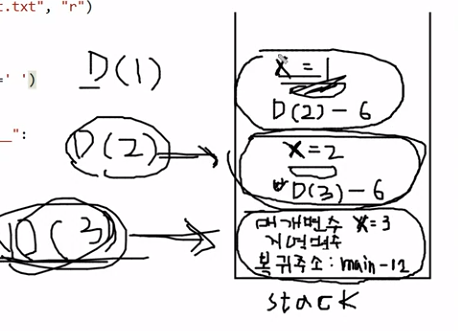 t.txt", "r")
=' ')
__":
D(1)
D(2)
D(3)
x=1
D(2)-6
x=2
D(3)-6
매개변수 x=3
지역변수
복귀주소: main-12
stack